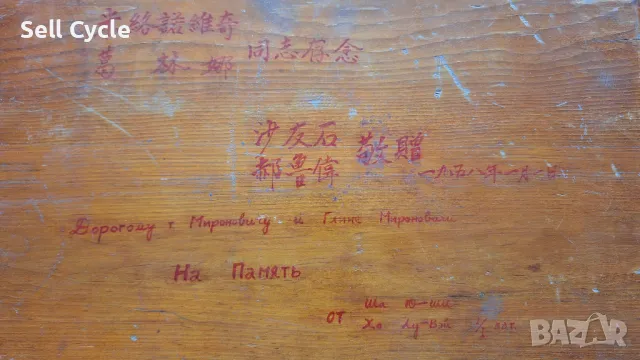 Sell Cycle
米絡諾維奇
葛林娜 同志存念
沙友石
郝魯偉 敬贈
一九五八年一月一日
Дорогому т Мироновичу и Галине Мироновой
На Память
от Ша Ю-ши
Хо Лу-вэй 1/I
BAZAR